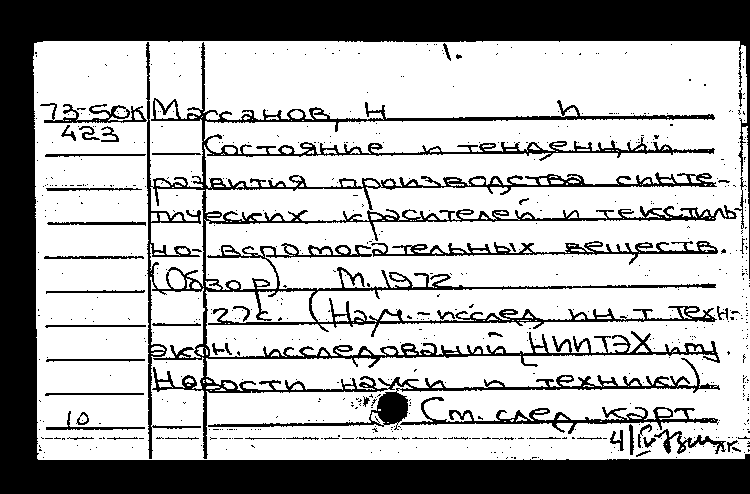 1.
73-50К Массанов, Н П
423 Состояние и тенденции
развития производства синте-
тических красителей и текстиль-
но-вспомогательных веществ.
(Обзор). М., 1972.
27с. (Науч.-исслед. ин-т техн-
экон. исследований НИИТЭХим.
Новости науки и техники).
10 См. след. карт
4/IV-73